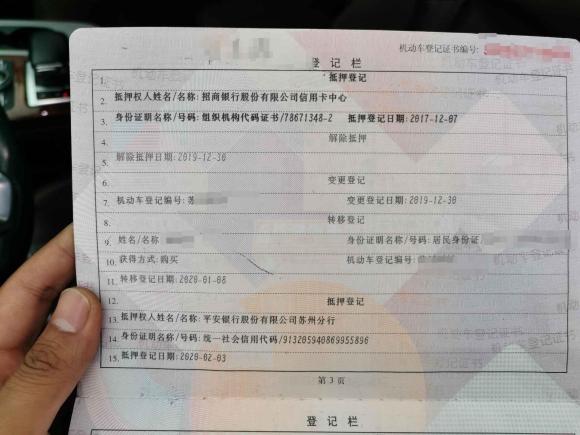 机动车登记证书编号:
登记栏
1. 抵押登记
2. 抵押权人姓名/名称: 招商银行股份有限公司信用卡中心
3. 身份证明名称/号码: 组织机构代码证书/78671348-2 抵押登记日期: 2017-12-07
4. 解除抵押
5. 解除抵押日期: 2019-12-30
6. 变更登记
7. 机动车登记编号: 苏 变更登记日期: 2019-12-30
8. 转移登记
9. 姓名/名称 身份证明名称/号码: 居民身份证/
10. 获得方式: 购买 机动车登记编号:
11. 转移登记日期: 2020-01-08
12. 抵押登记
13. 抵押权人姓名/名称: 平安银行股份有限公司苏州分行
14. 身份证明名称/号码: 统一社会信用代码/913205940869955896
15. 抵押登记日期: 2020-02-03
第 3 页
登记栏